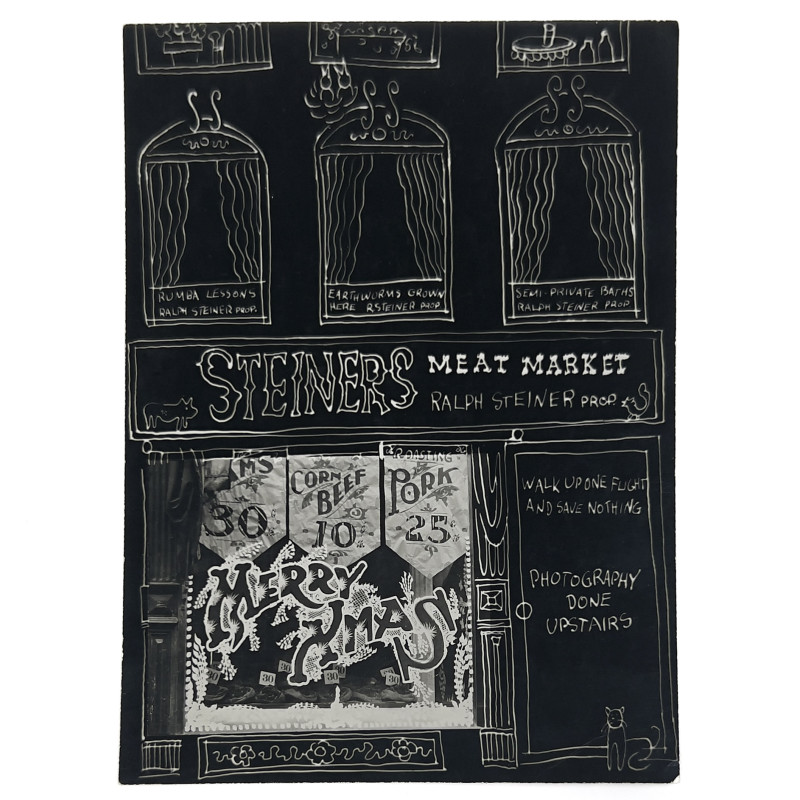 WOW
WOW
WOW
RUMBA LESSONS
RALPH STEINER PROP.
EARTHWORMS GROWN
HERE RSTEINER PROP.
SEMI-PRIVATE BATHS
RALPH STEINER PROP.
STEINERS MEAT MARKET
RALPH STEINER PROP.
MS
30
CORNED
BEEF
10
ROASTING
PORK
25
MERRY
XMAS
30
30
30
30
WALK UP ONE FLIGHT
AND SAVE NOTHING
PHOTOGRAPHY
DONE
UPSTAIRS